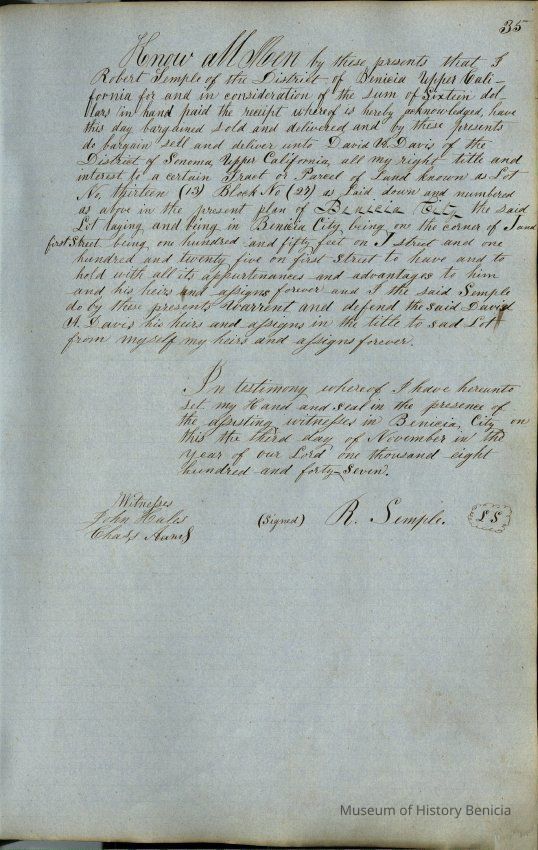 35
Know all Men by these presents that I
Robert Semple of the District of Benicia Upper Cali-
fornia for and in consideration of the sum of Sixteen dol
lars in hand paid the receipt whereof is hereby acknowledged, have
this day bargained sold and delivered and by these presents
do bargain sell and deliver unto David W. Davis of the
District of Sonoma, Upper California, all my right title and
interest to a certain Tract or Parcel of Land known as Lot
No, thirteen (13) Block No (27) as laid down and numbered
as above in the present plan of Benicia City the said
Lot laying and being in Benicia City being on the corner of I and
first Street being one hundred and fifty feet on I street and one
hundred and twenty five on first street to have and to
hold with all its appurtinances and advantages to him
and his heirs and assigns forever and I the said Semple
do by these presents Warrent and defend the said David
W. Davis his heirs and assigns in the title to sad Lot
from myself my heirs and assigns forever.
In testimony whereof I have hereunto
set my Hand and seal in the presence of
the assisting witnesses in Benicia, City on
this the third day of November in the
year of our Lord one thousand eight
hundred and forty-seven.
Witnesses
John Hales
(Signed) R. Semple. LS
Museum of History Benicia